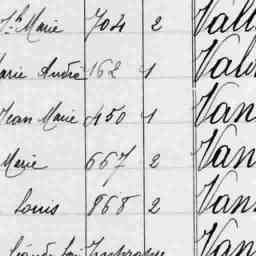 Jh Marie 704 2 Vall
arie André 162 1 Valo
Jean Marie 450 1 Van
Marie 667 2 Van
Louis 868 2 Van
Van